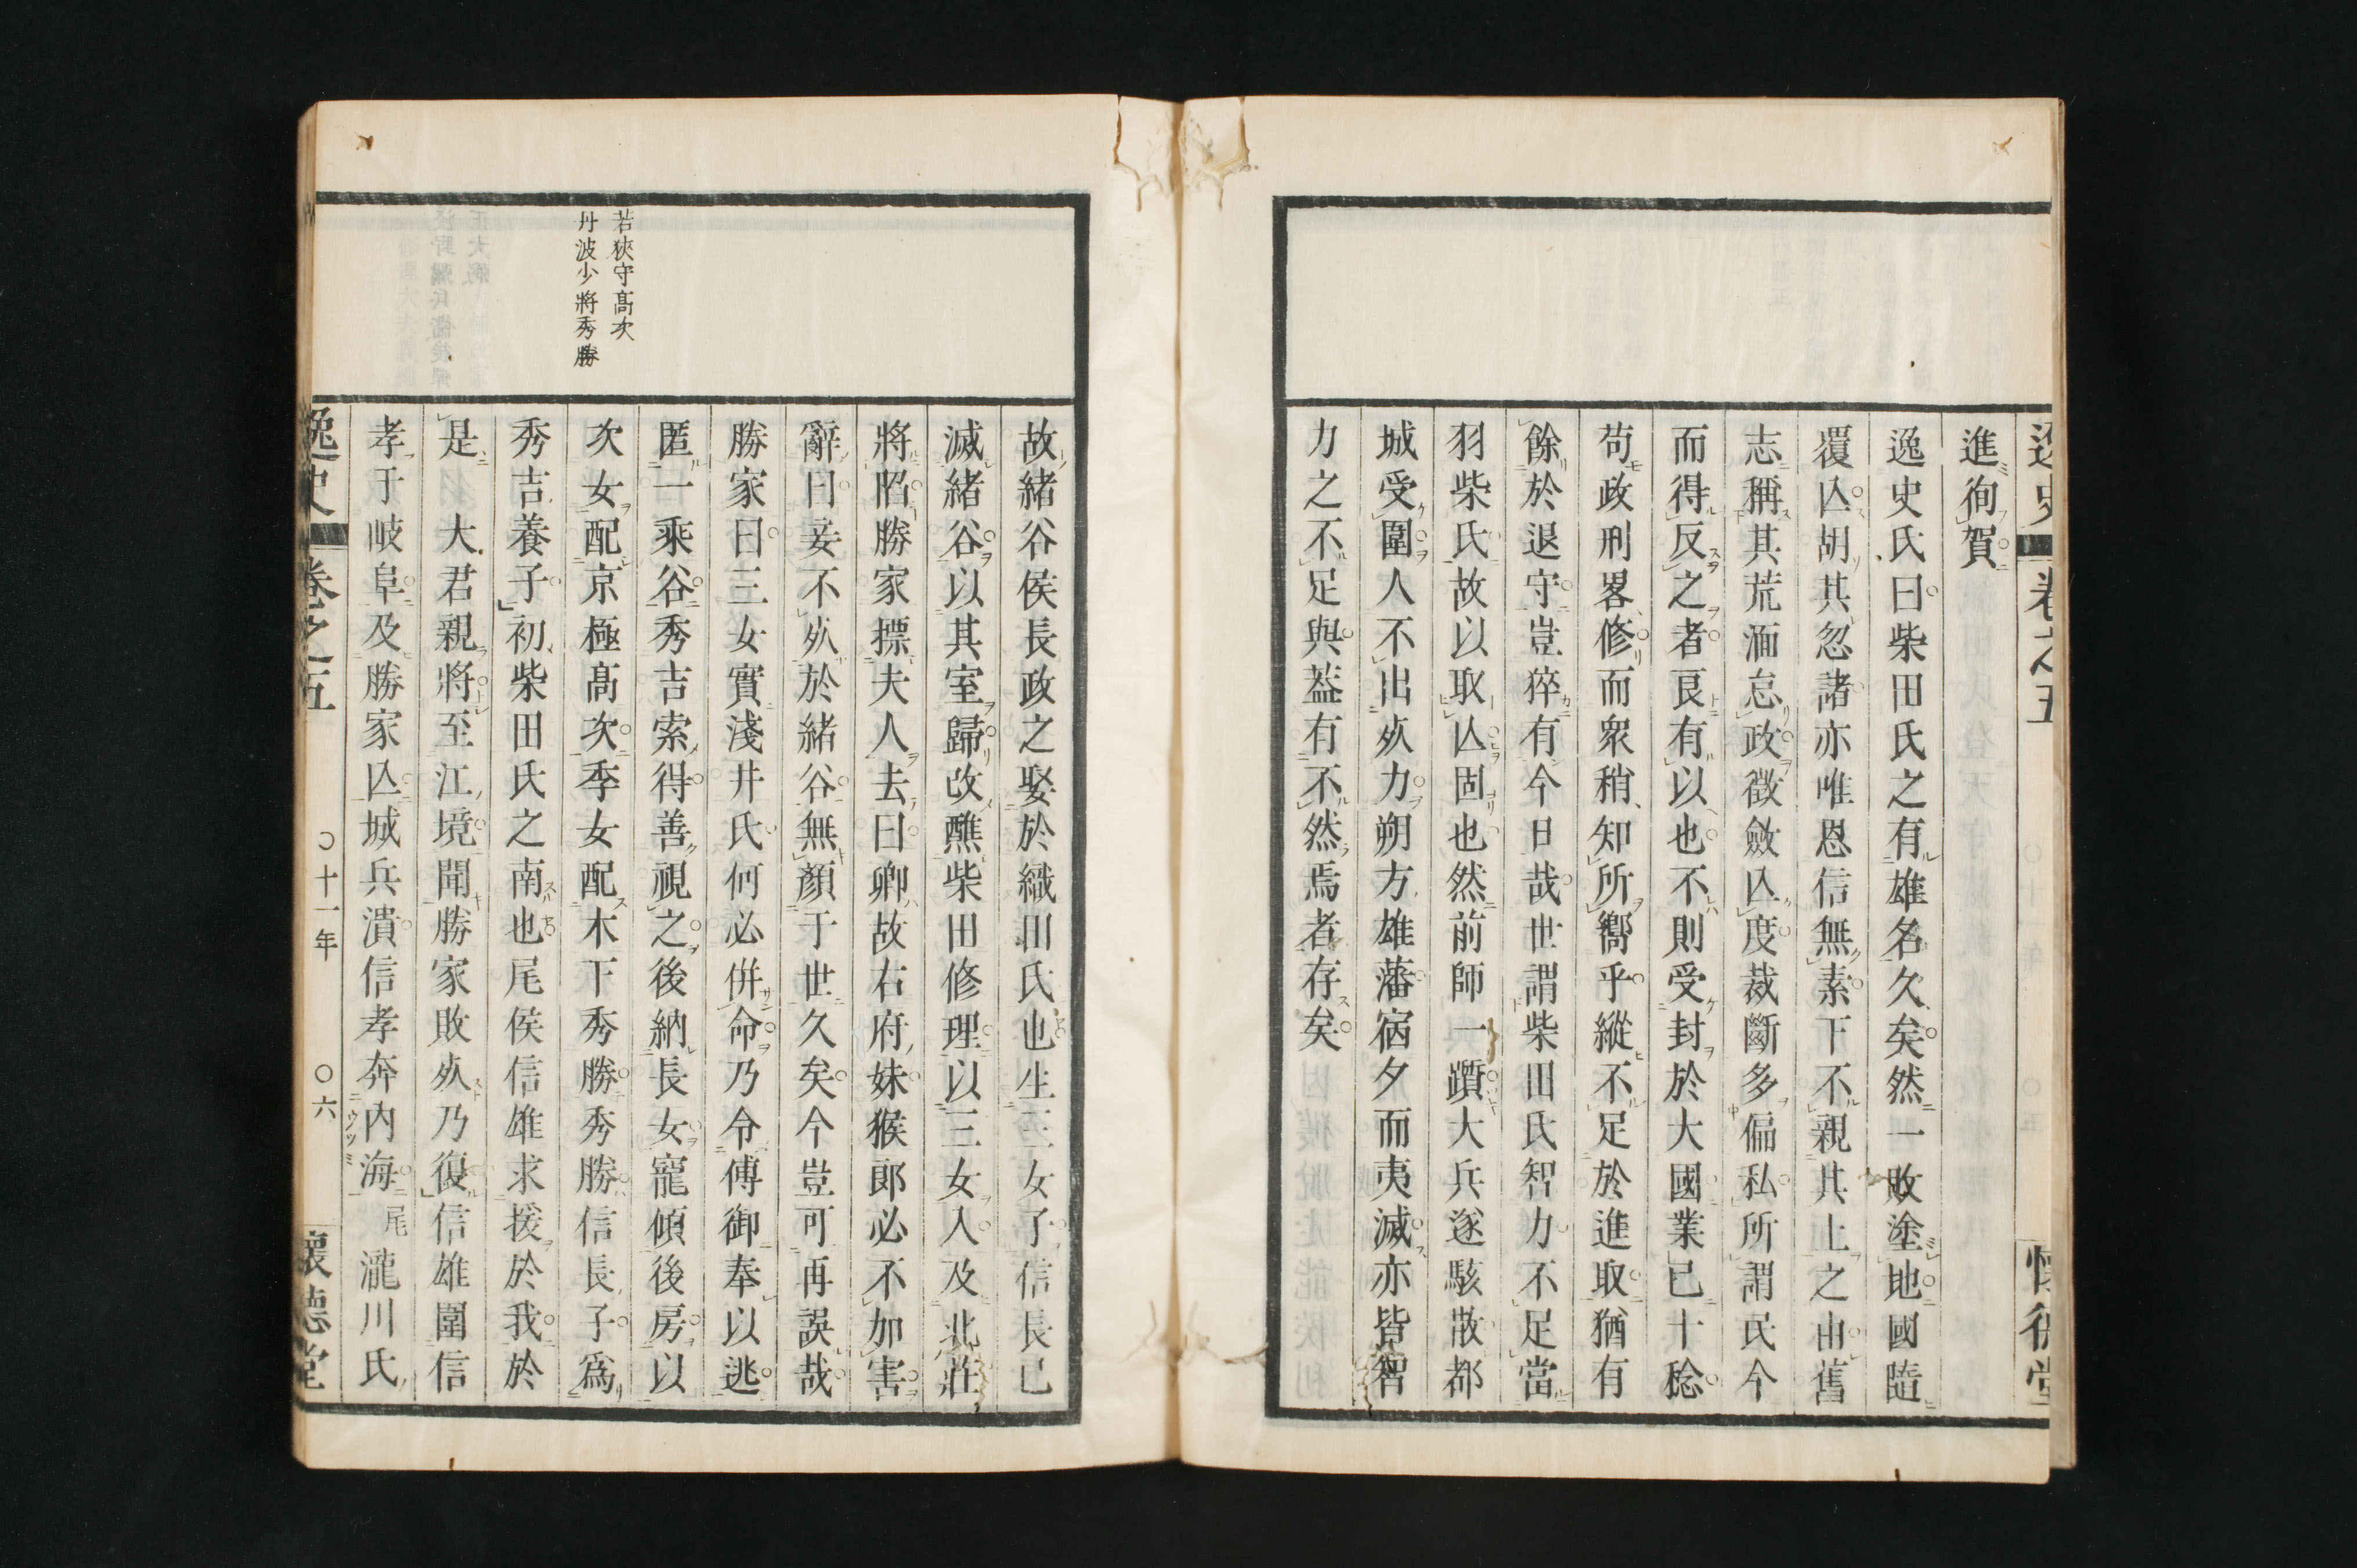 進徇賀
逸史氏曰柴田氏之有雄名久矣然一敗塗地國隨
覆亾胡其忽諸亦唯恩信無素下不親其上之由舊
志稱其荒湎怠政徵斂亾度裁斷多偏私所謂民今
而得反之者良有以也不則受封於大國業已十稔
苟政刑畧修而衆稍知所嚮乎縱不足於進取猶有
餘於退守豈猝有今日哉世謂柴田氏智力不足當
羽柴氏故以取亾固也然前師一躓大兵遂駭散都
城受圍人不出死力朔方雄藩宿夕而夷滅亦皆智
力之不足與蓋有不然焉者存矣
故緒谷侯長政之娶於織田氏也生三女了信長已
滅緒谷以其室歸改醮柴田修理以三女入及北莊
將陷勝家摽夫人去曰卿故右府妹猴郎必不加害
辭曰妾不死於緒谷無顏于世久矣今豈可再誤哉
勝家曰三女實淺井氏何必併命乃令傅御奉以逃
匿一乘谷秀吉索得善視之後納長女寵傾後房以
次女配京極高次季女配木下秀勝秀勝信長子爲
秀吉養子初柴田氏之南也尾侯信雄求援於我於
是大君親將至江境聞勝家敗死乃復信雄圍信
孝于岐阜及勝家亾城兵潰信孝奔內海尾瀧川氏
若狹守高次
丹波少將秀勝
逸史 卷之五 〇十一年 〇六 懷德堂